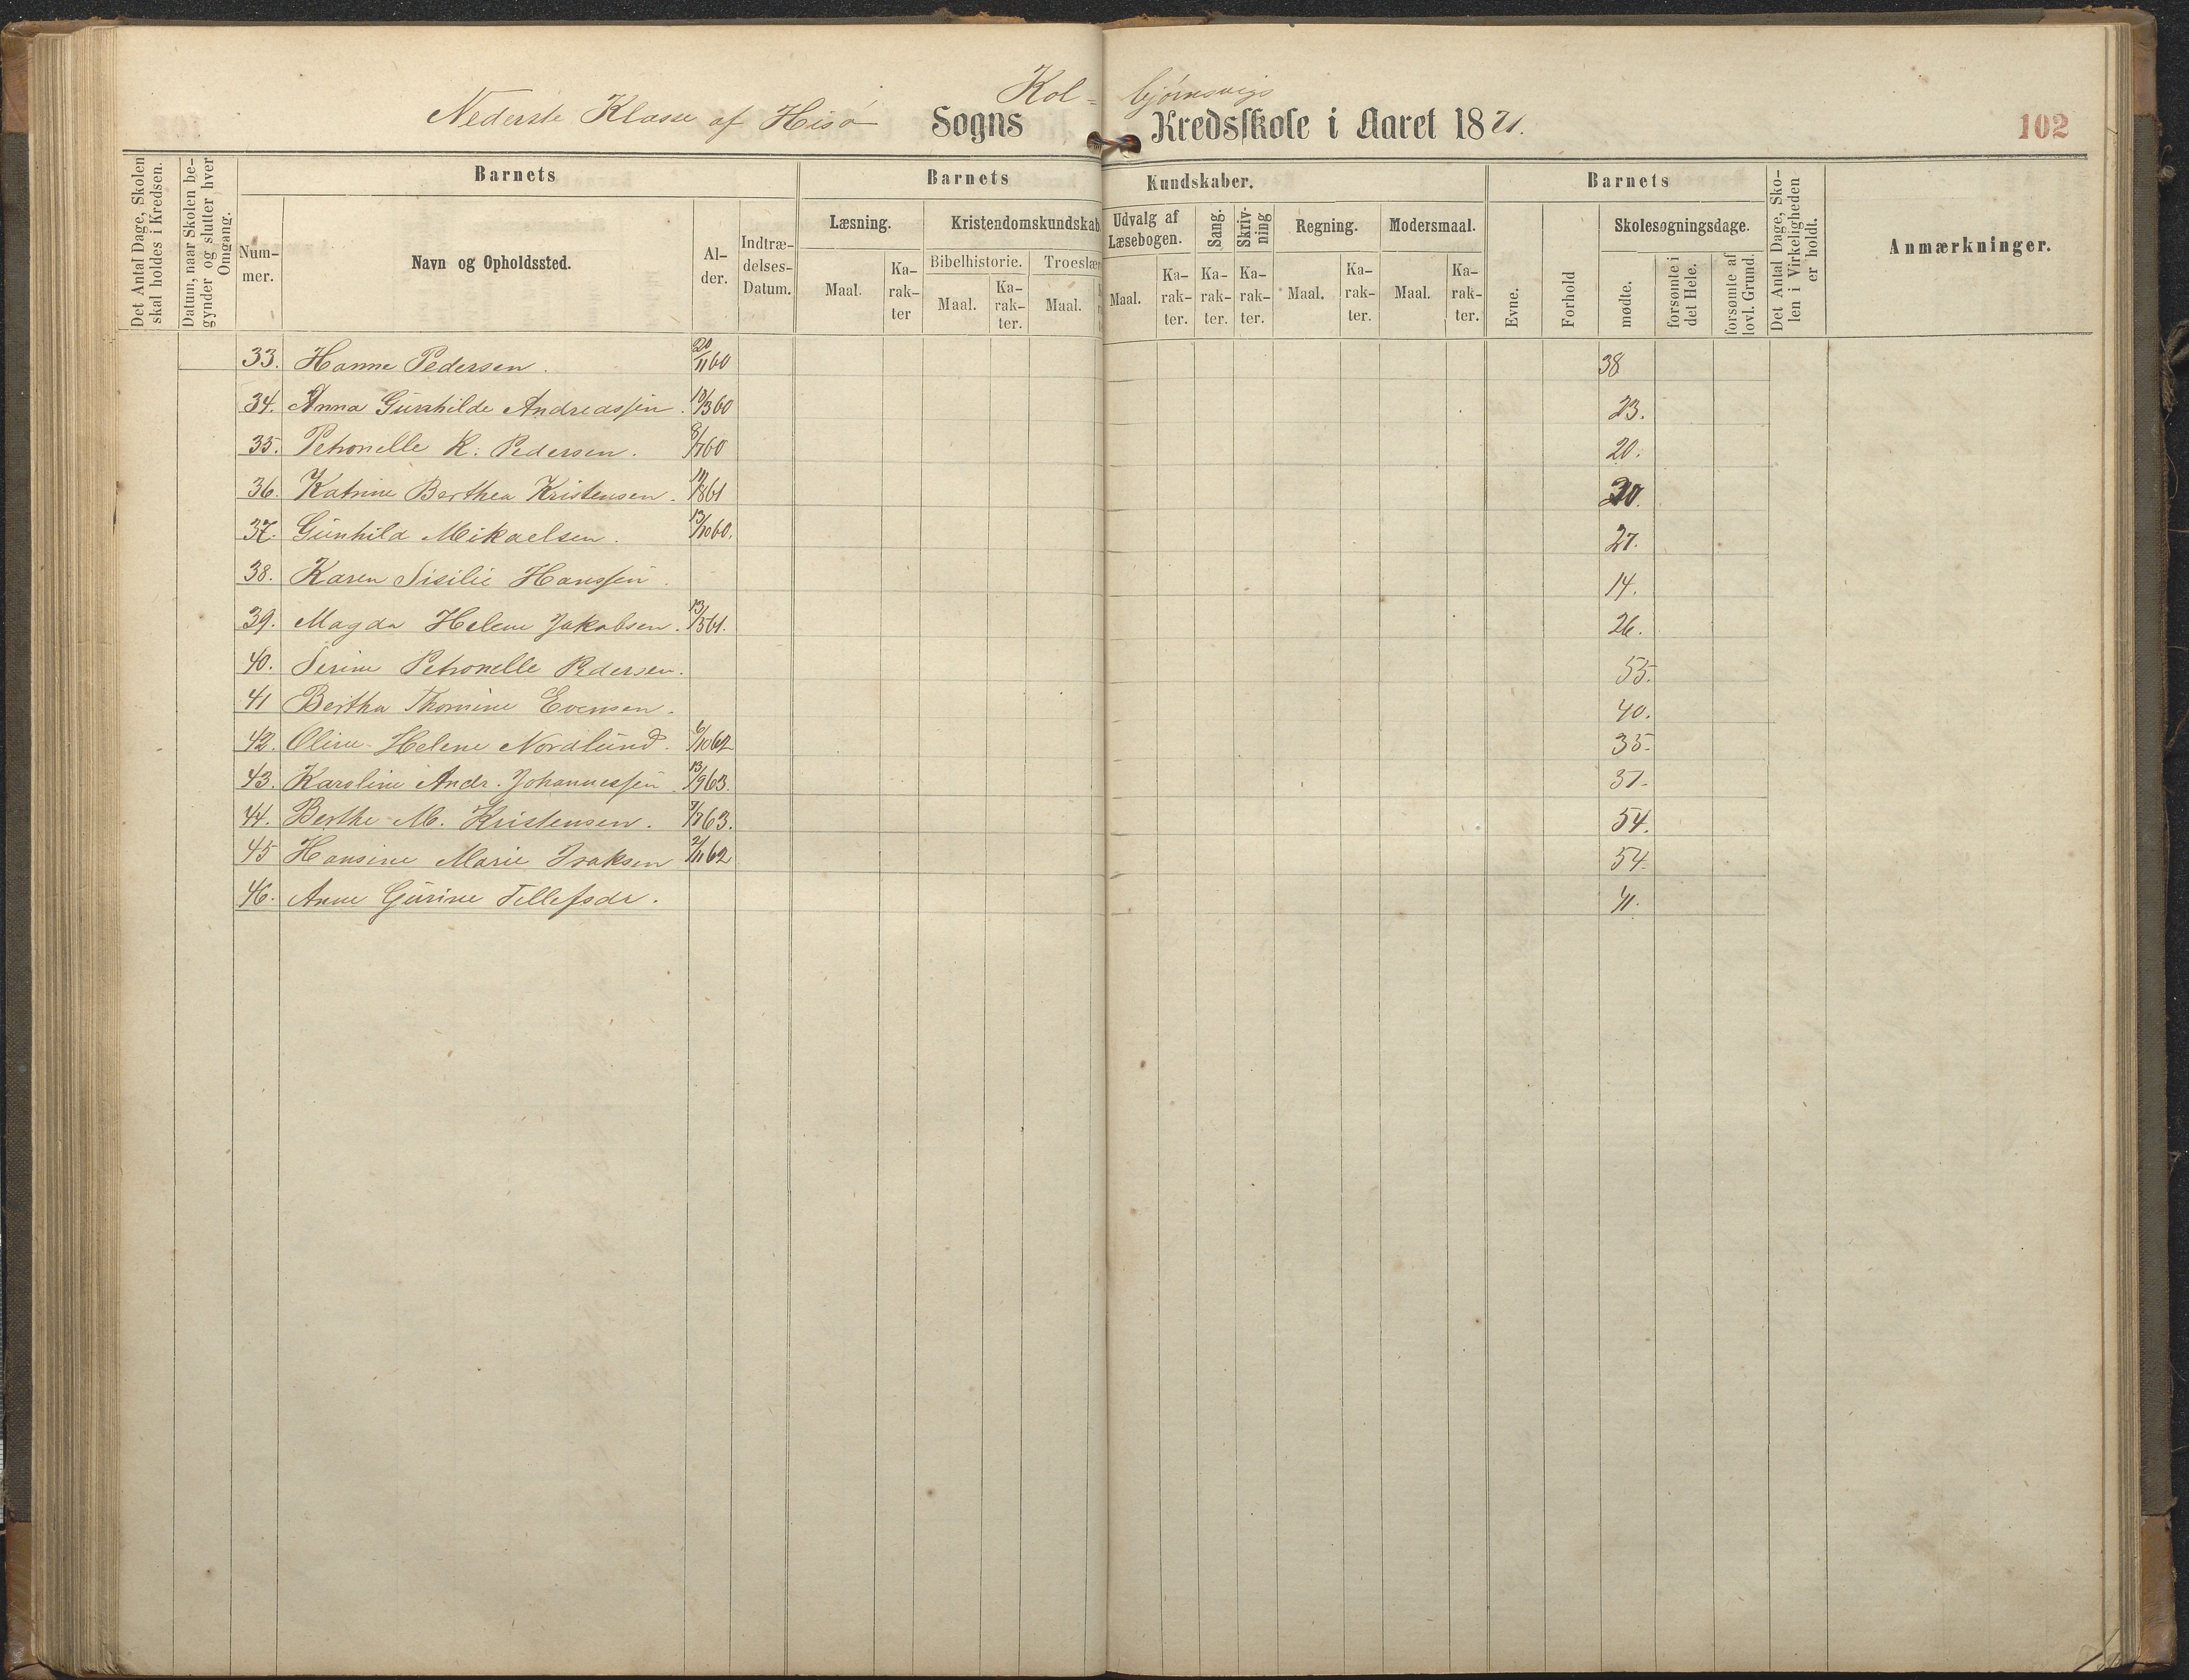 Kol- bjørnsvigs
Nederste Klasse af Hisø Sogns Kredsskole i Aaret 1871.
102
Det Antal Dage, Skolen skal holdes i Kredsen.
Datum, naar Skolen begynder og slutter hver Omgang.
Barnets
Barnets Kundskaber.
Barnets
Det Antal Dage, Skolen i Virkeligheden er holdt.
Anmærkninger.
Nummer.
Navn og Opholdssted.
Alder.
Indtrædelses-Datum.
Læsning.
Kristendomskundskab
Udvalg af Læsebogen.
Sang.
Skrivning
Regning.
Modersmaal.
Evne.
Forhold
Skolesøgningsdage.
Bibelhistorie.
Troeslær
Maal.
Karakter
Maal.
Karakter.
Maal.
Maal.
Karakter.
Karakter.
Karakter.
Maal.
Karakter.
Maal.
Karakter.
mødte.
forsømte i det Hele.
forsømte af lovl. Grund.
33. Hanne Pedersen. 20/11 60 38
34. Anna Gunhilde Andreassen. 10/3 60 23.
35. Petronelle K. Pedersen. 8/7 60 20.
36. Katrine Berthea Kristensen. 11/8 61 30.
37. Gunhild Mikaelsen. 13/10 60. 27.
38. Karen Sisilie Hanssen. 14.
39. Magda Helene Jakobsen. 13/5 61. 26.
40. Serine Petronelle Pedersen. 55.
41 Bertha Thomine Evensen. 40.
42. Oline Helene Nordlund. 6/10 62 35.
43. Karoline Andr. Johannessen. 13/9 63. 37.
44. Berthe M. Kristensen. 7/7 63. 54.
45 Hansine Marie Isaksen 2/11 62 54.
46. Anne Gurine Tellefsdr. 41.